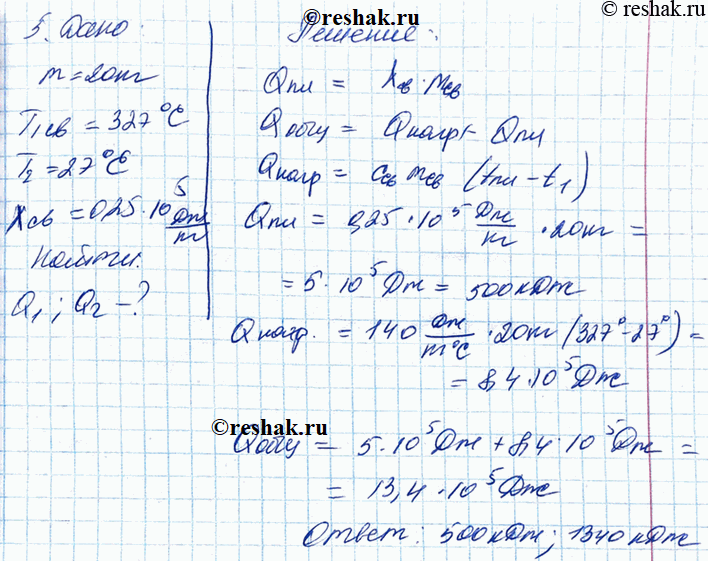 ©reshak.ru
©reshak.ru
5. Дано:
m = 20 кг
T₁св = 327 °C
T₂ = 27 °C
λсв = 0,25 · 10⁵ Дж/кг
Найти:
Q₁; Q₂ - ?
Решение:
Qпл = λсв · mсв
Qобщ = Qнагр + Qпл
Qнагр = cсв mсв (tпл - t₁)
Qпл = 0,25 · 10⁵ Дж/кг · 20 кг =
= 5 · 10⁵ Дж = 500 кДж
Qнагр. = 140 Дж/кг°C · 20 кг (327° - 27°) =
= 8,4 · 10⁵ Дж
©reshak.ru
Qобщ = 5 · 10⁵ Дж + 8,4 · 10⁵ Дж =
= 13,4 · 10⁵ Дж
Ответ: 500 кДж; 1340 кДж
©reshak.ru